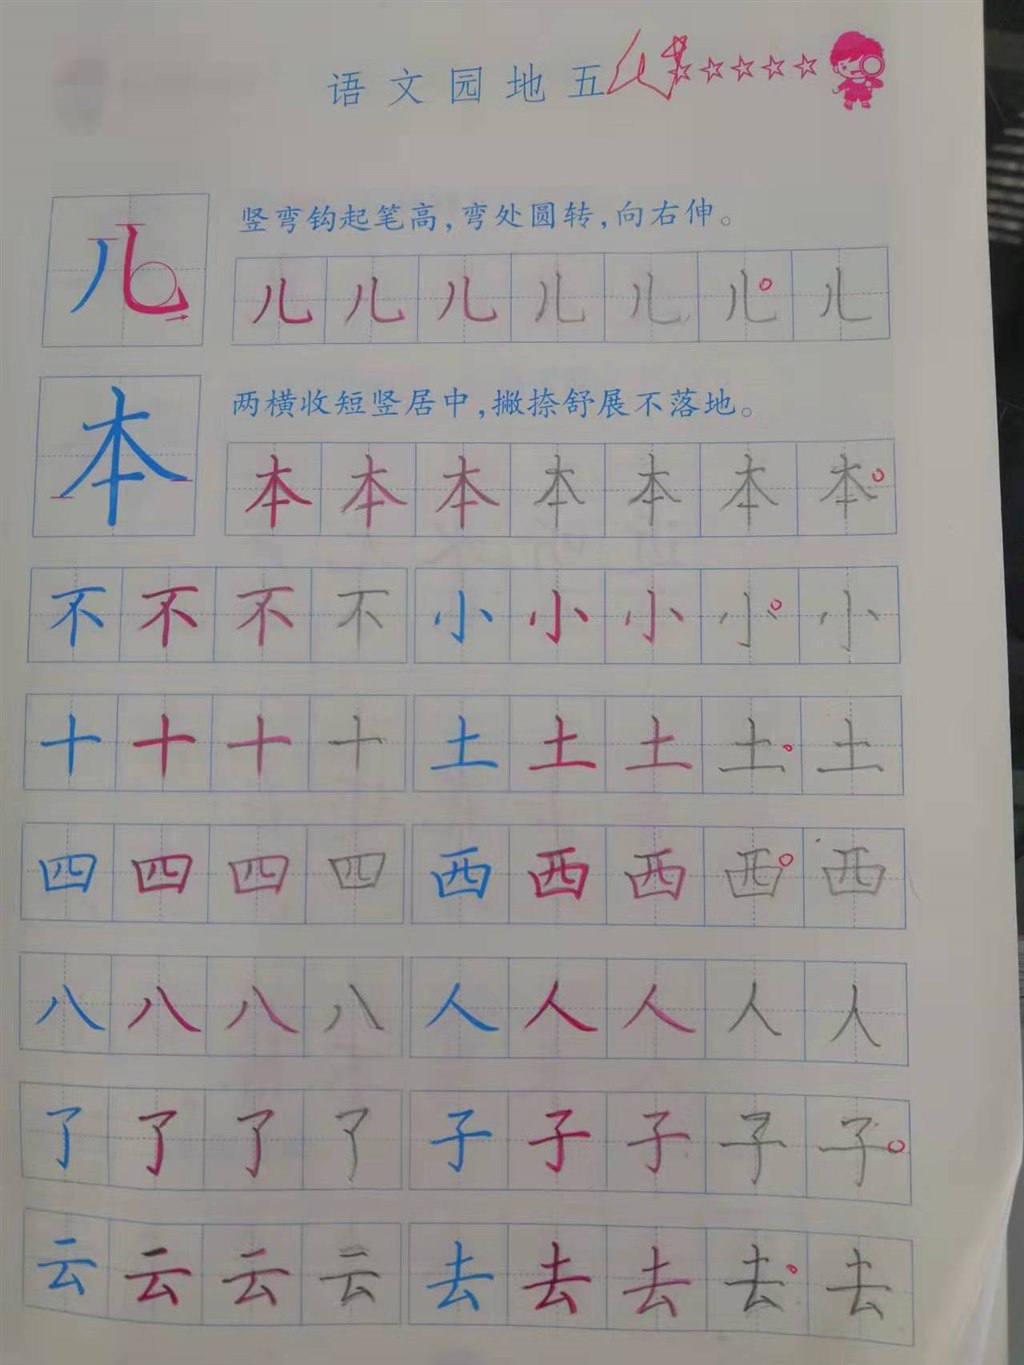 语文园地五优☆☆☆☆☆
竖弯钩起笔高,弯处圆转,向右伸。
儿 儿 儿 儿 儿 儿 儿 儿
两横收短竖居中,撇捺舒展不落地。
本 本 本 本 本 本 本 本
不 不 不 不 小 小 小 小 小
十 十 十 十 土 土 土 土 土
四 四 四 四 西 西 西 西 西
八 八 八 八 人 人 人 人 人
了 了 了 了 子 子 子 子 子
云 云 云 云 去 去 去 去 去